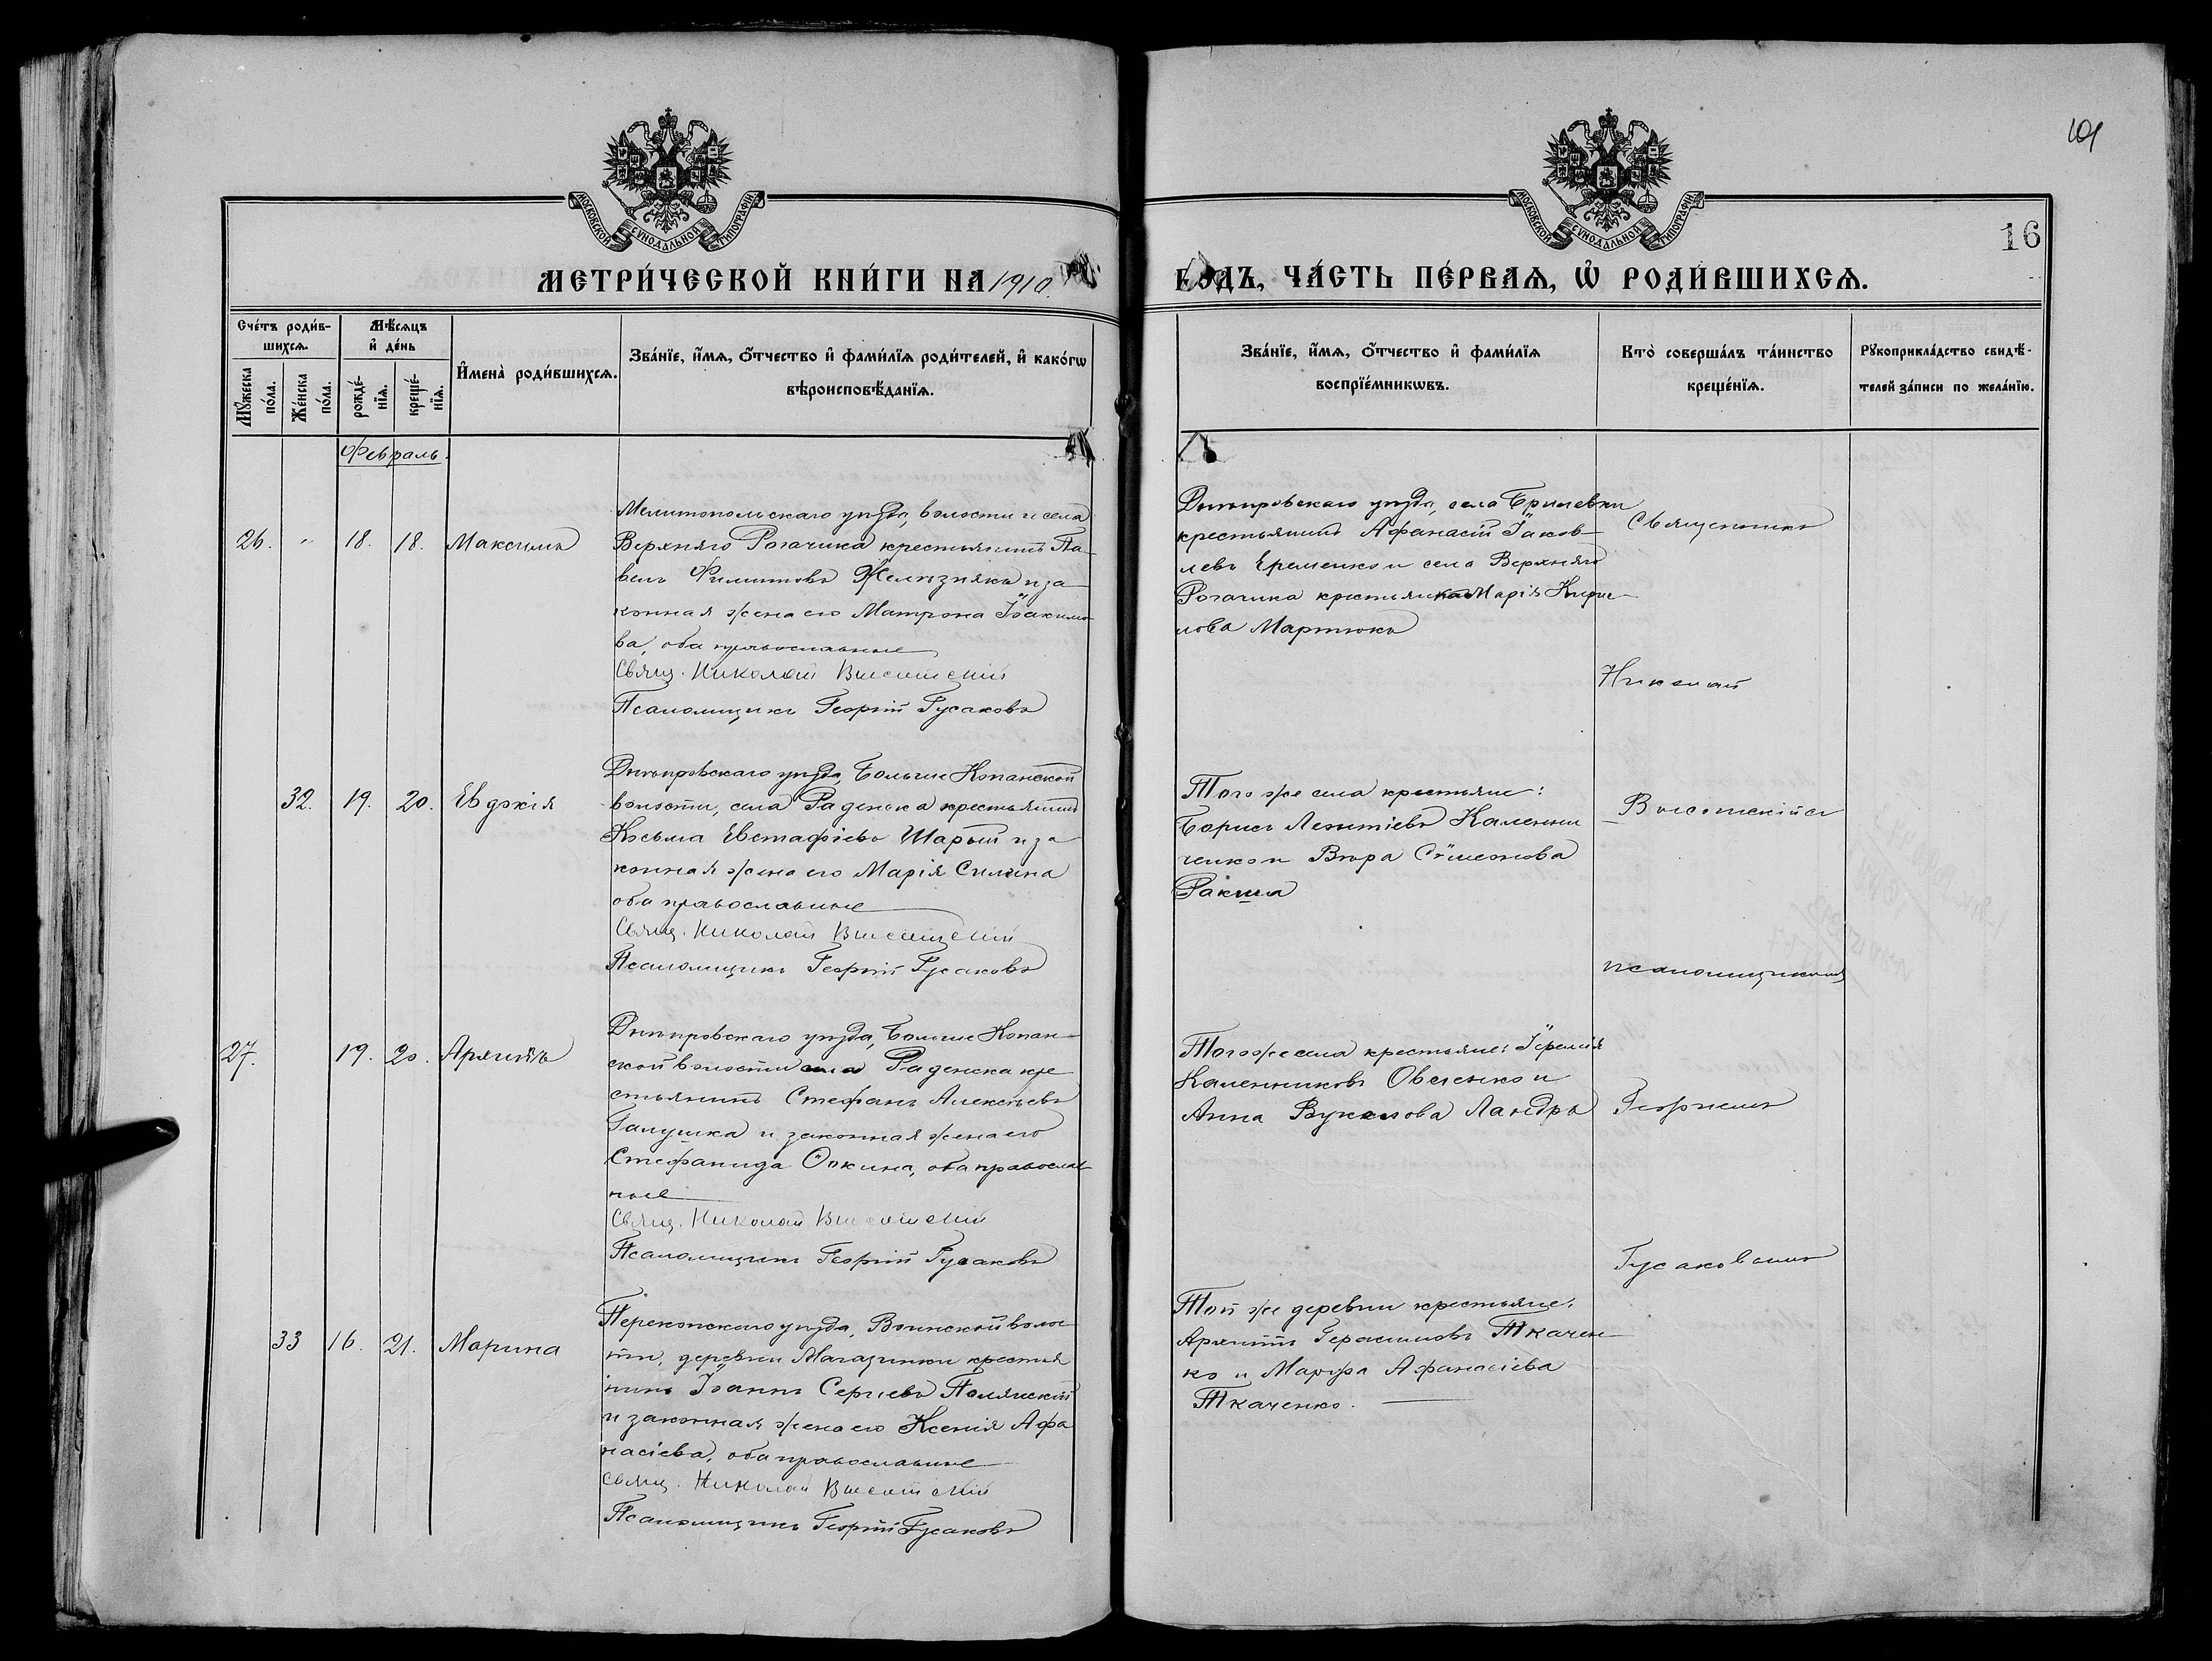 101
МОСКОВСКОЙ СѴНОДАЛЬНОЙ ТИПОГРАФІИ
МОСКОВСКОЙ СѴНОДАЛЬНОЙ ТИПОГРАФІИ
16
МЕТРИ́ЧЕСКОЙ КНИ́ГИ НА 1910
ГОДЪ, ЧА́СТЬ ПЕ́РВАѦ, Ѡ҆ РОДИ́ВШИХСѦ.
Сче́тъ роди́в-
шихсѧ.
Мѣ́сѧцъ
и҆ де́нь
Мꙋ́жеска
по́ла.
Же́нска
по́ла.
рожде́-
нїѧ.
креще́-
нїѧ.
И҆мена̀ роди́вшихсѧ.
Зва́нїе, и҆́мѧ, ѻ҆́тчество и҆ фами́лїѧ роди́телей, и҆ како́гѡ
вѣроисповѣ́данїѧ.
Зва́нїе, и҆́мѧ, ѻ҆́тчество и҆ фами́лїѧ
воспрїе́мникѡвъ.
Кто̀ соверша́лъ та́инство
креще́нїѧ.
Рꙋкоприкла́дство свидѣ́-
телей за́писи по жела́нїю.
Февраль.
26. " 18. 18. Максимъ
Мелитопольскаго уѣзда, волости и села
Верхняго Рогачика крестьянинъ Па-
велъ Филиповъ Желѣзнякъ и за-
конная жена его Матрона Іоакимо-
ва, оба православные
Свящ. Николай Высотскій
Псаломщикъ Георгій Гусаковъ
Днѣпровскаго уѣзда, села Бриловки
крестьянинъ Афанасій Іаков-
левъ Еременко и села Верхняго
Рогачика крестьянка Марія Кири-
лова Мартюкъ
Священникъ
Николай
32. 19. 20. Евдокія
Днѣпровскаго уѣзда, Больше Копанской
волости, села Раденска крестьянинъ
Косьма Евстафіевъ Шарый и за-
конная жена его Марія Силина
оба православные
Свящ. Николай Высотскій
Псаломщикъ Георгій Гусаковъ
Того же села крестьяне:
Борисъ Леонтіевъ Каленни
ченко и Вѣра Сѵмеонова
Ракша
Высотскій съ
псаломщикомъ
27. 19. 20. Архипъ
Днѣпровскаго уѣзда, Больше Копан-
ской волости села Раденска кре
стьянинъ Стефанъ Алексѣевъ
Галушка и законная жена его
Стефанида Ѳокина, оба православ-
ные
Свящ. Николай Высотскій
Псаломщикъ Георгій Гусаковъ
Того же села крестьяне: Іеремія
Каленниковъ Овсенко и
Анна Вуколова Ландръ
Георгіемъ
Гусаковымъ
33 16. 21. Марина
Перекопскаго уѣзда, Воинской волос
ти, деревни Магазинки крестья
нинъ Іоаннъ Сергіевъ Полянскій
и законная жена его Ксенія Афа
насіева, оба православные
Свящ. Николай Высотскій
Псаломщикъ Георгій Гусаковъ
Той же деревни крестьяне:
Архипъ Герасимовъ Ткачен-
ко и Марѳа Афанасіева
Ткаченко.